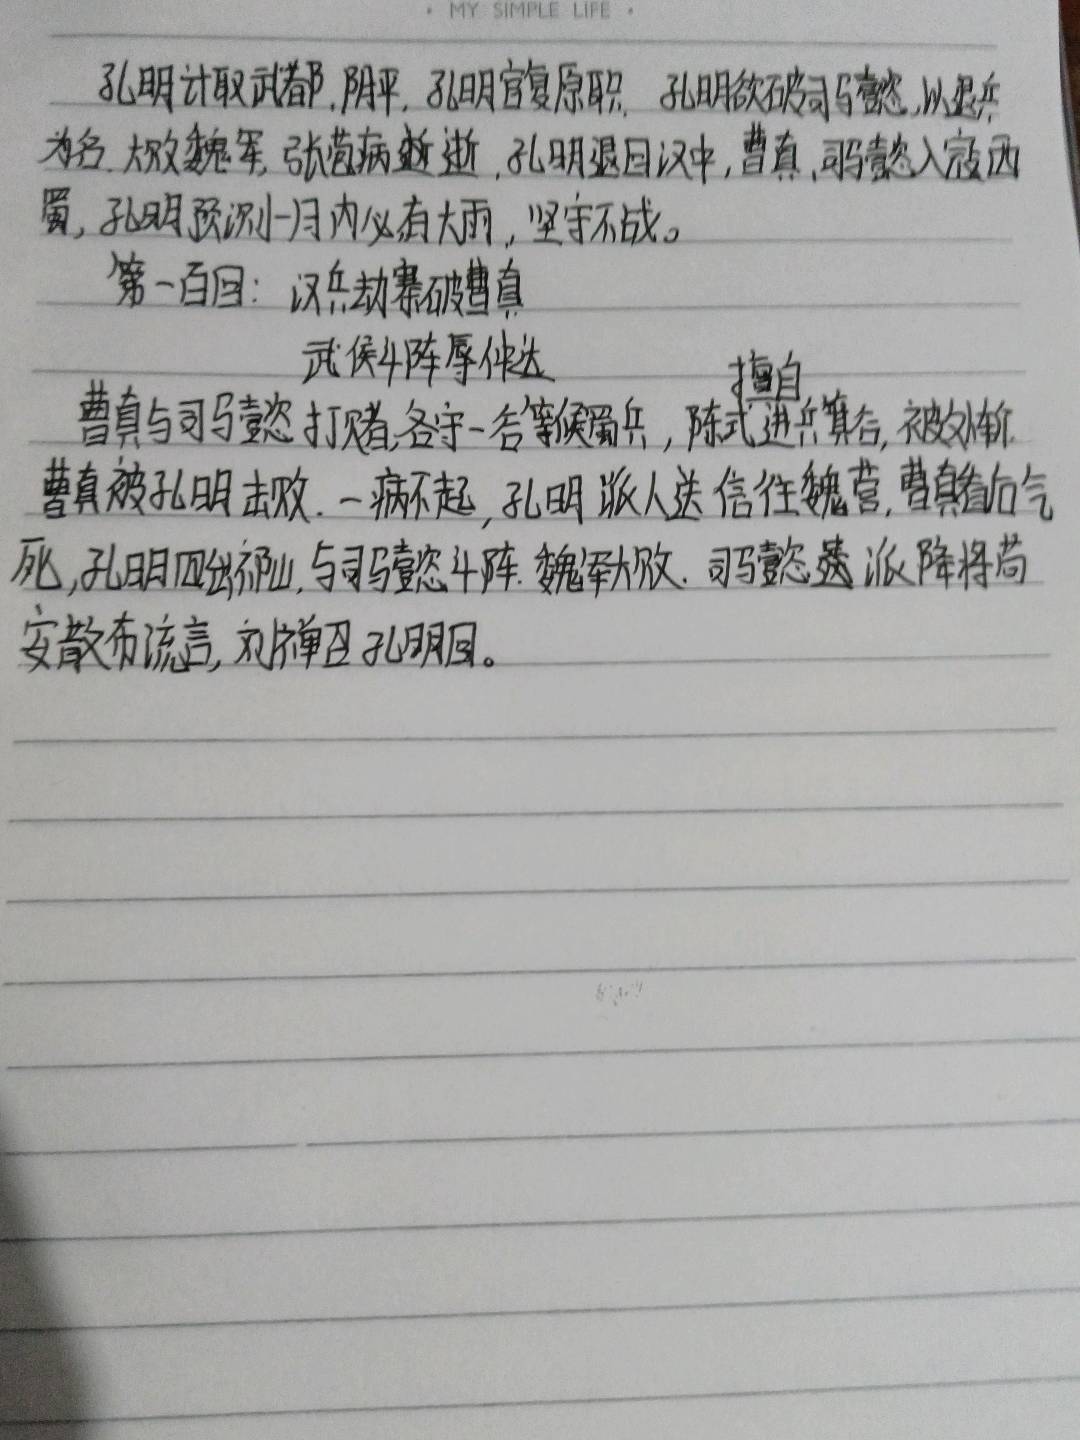 · MY SIMPLE LIFE ·
孔明计取武都,阴平,孔明官复原职,孔明欲破司马懿,以退兵
为名,大败魏军,张苞病逝,孔明退回汉中,曹真,司马懿入寇西
蜀,孔明预测一月内必有大雨,坚守不战。
第一百回:汉兵劫寨破曹真
武侯斗阵辱仲达
擅自
曹真与司马懿打赌,各守一谷等候蜀兵,陈式进兵箕谷,被处斩.
曹真被孔明击败.一病不起,孔明派人送信往魏营,曹真看后气
死,孔明四出祁山,与司马懿斗阵.魏军大败.司马懿派降将苟
安散布流言,刘禅召孔明回。